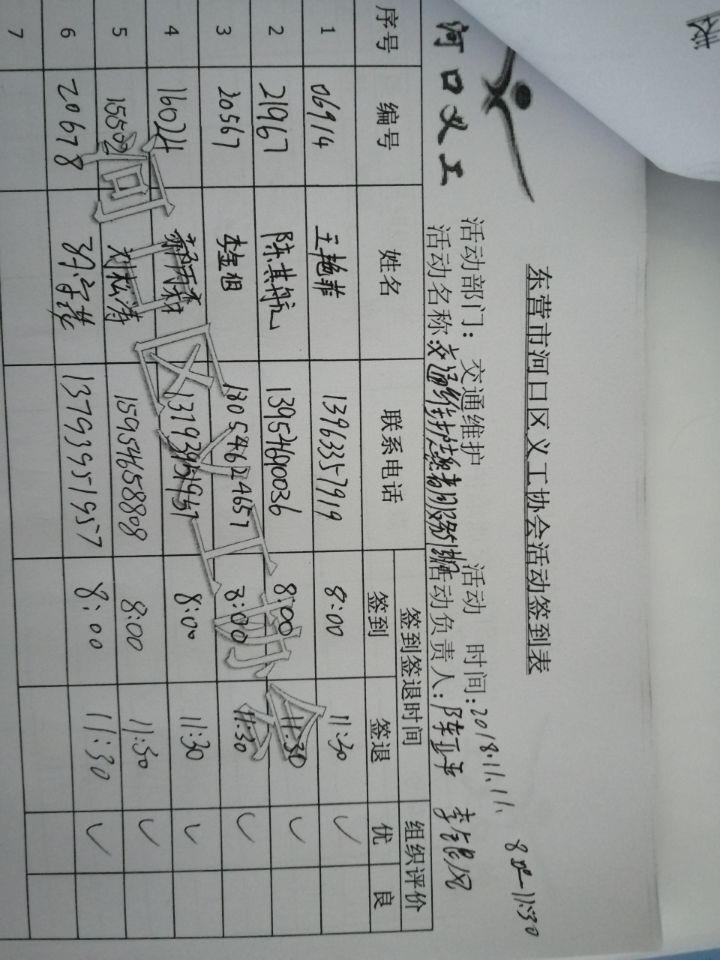 东营市河口区义工协会活动签到表
河口义工
活动部门：交通维护 活动 时间：2018.11.11. 8:00-11:30
活动名称 交通维护志愿者服务 活动负责人：陈亚平 李银风
序号 编号 姓名 联系电话 签到签退时间 组织评价
签到 签退 优 良
1 06914 王艳菲 13963357919 8:00 11:30 ✓
2 21967 陈其航 13954690036 8:00 11:30 ✓
3 20567 李金祖 18054624657 8:00 11:30 ✓
4 16024 13793951957 8:00 11:30 ✓
5 刘松涛 15954658808 8:00 11:30 ✓
6 20678 13793951957 8:00 11:30 ✓
7
河口区义工协会